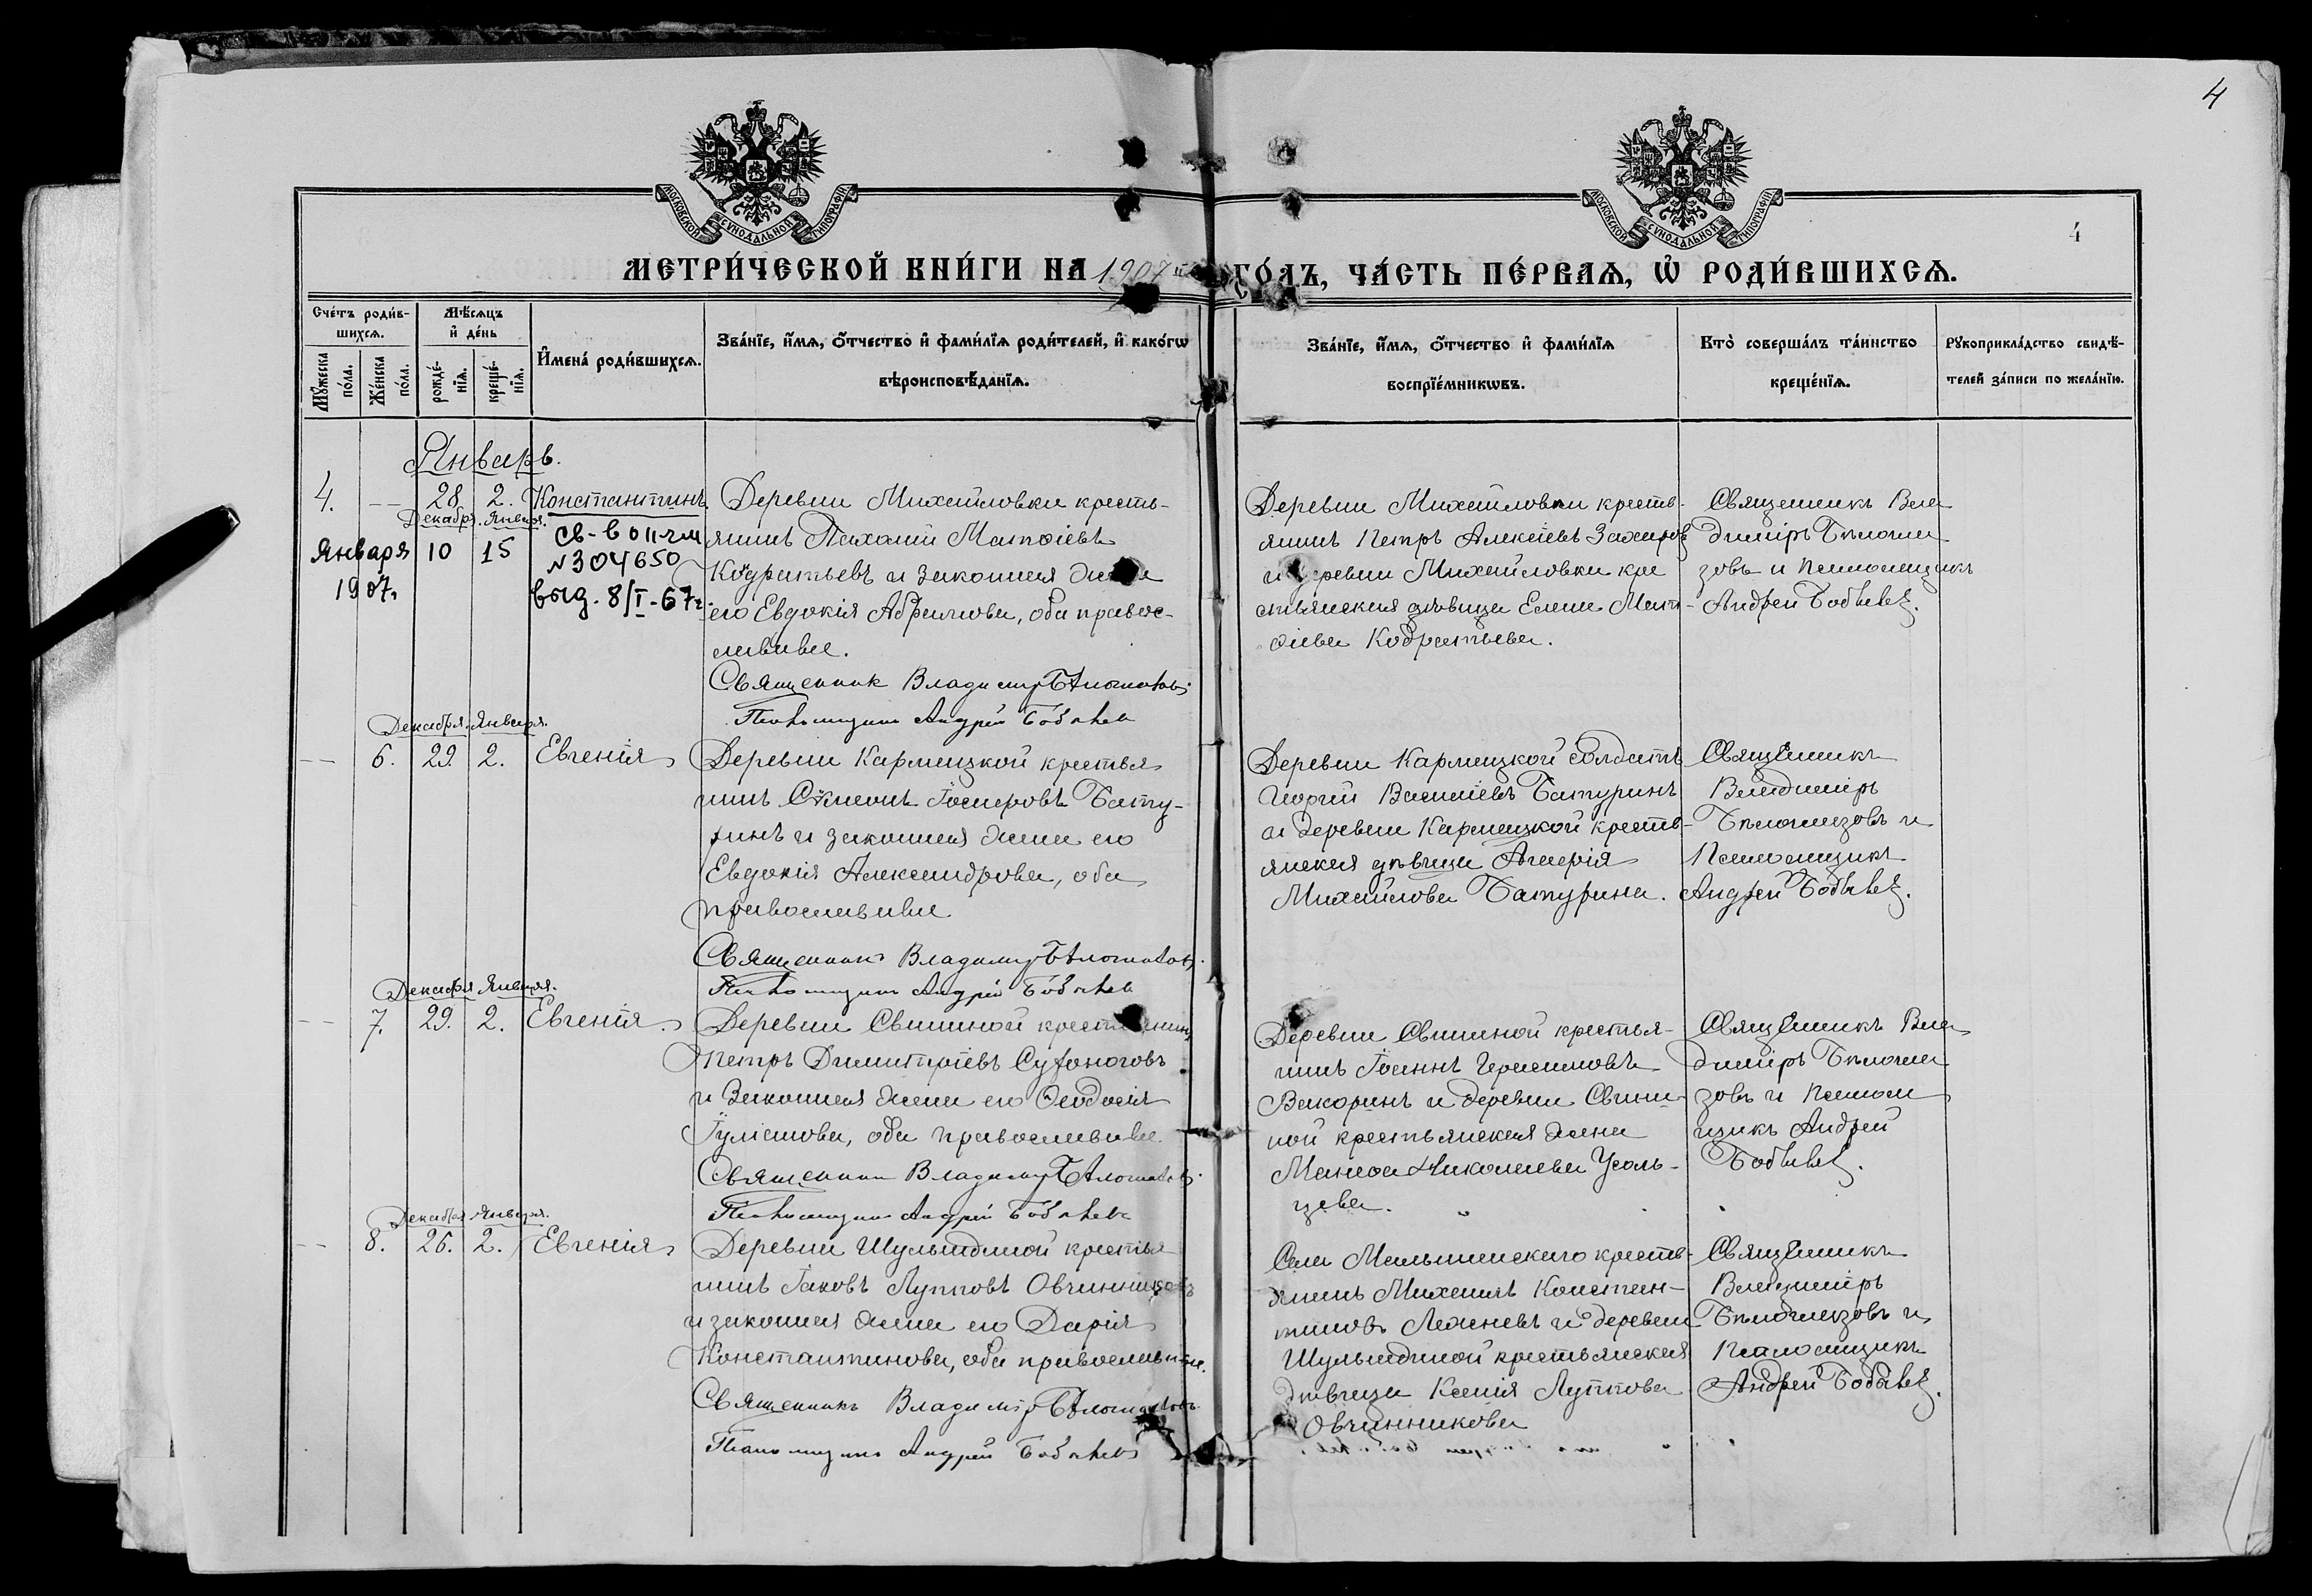 4
МОСКОВСКОЙ СѴНОДАЛЬНОЙ ТИПОГРАФІИ
МОСКОВСКОЙ СѴНОДАЛЬНОЙ ТИПОГРАФІИ
4
МЕТРИ́ЧЕСКОЙ КНИ́ГИ НА 1907
ГО́ДЪ, ЧА́СТЬ ПЕ́РВАѦ, Ѡ҆ РОДИ́ВШИХСѦ.
Сче́тъ роди́в-
шихсѧ.
Мꙋ́жеска по́ла.
Же́нска по́ла.
Мѣ́сѧцъ
и҆ де́нь
рожде́-
нїѧ.
креще́-
нїѧ.
И҆мена̀ роди́вшихсѧ.
Зва́нїе, и҆́мѧ, ѻ҆́тчество и҆ фами́лїѧ роди́телей, и҆ како́гѡ
вѣроисповѣ́данїѧ.
Зва́нїе, и҆́мѧ, ѻ҆́тчество и҆ фами́лїѧ
воспрїе́мникѡвъ.
Кто̀ соверша́лъ та́инство
креще́нїѧ.
Рꙋкоприкла́дство свидѣ́-
телей за́писи по жела́нїю.
Январь.
4. — 28 2. Константинъ.
Декабр. Января.
св-во
№304650
выд. 8/I-67г.
Января 10 15
1907г.
Деревни Михайловки кресть-
янинъ Матѳіевъ
Кодратьевъ и законная жена
его Евдокія Абрамова, оба право-
славные.
Священник Владимир Бѣломазовъ
Псаломщик Андрей
Деревни Михайловки кресть-
янинъ Петръ Алексіевъ Захаров
и деревни Михайловки кре
стьянская дѣвица Елена Мат-
ѳіева Кодратьева.
Священникъ Вла
димиръ Бѣлома
зовъ и Псаломщикъ
Андрей
Декабря. Января.
— 6. 29. 2. Евгенія
Деревни Кармацкой крестья
нинъ Сѵмеонъ Іосифовъ Бату-
ринъ и законная жена его
Евдокія Александрова, оба
православные
Священникъ Владимиръ Бѣломазовъ.
Псаломщикъ Андрей
Деревни Кармацкой солдатъ
Георгій Василіевъ Батуринъ
и деревни Кармацкой кресть-
янская дѣвица
Михайлова Батурина.
Священникъ
Владиміръ
Бѣломазовъ и
Псаломщикъ
Андрей
Декабря Января.
— 7. 29. 2. Евгенія.
Деревни Свининой крестьянинъ
Петръ Димитріевъ Суфоноговъ
и Законная жена его Ѳеодосія
оба православные.
Священник Владимир Бѣломазовъ.
Псаломщикъ Андрей
Деревни Свининой крестья-
нинъ Іоаннъ Герасимовъ
Вакоринъ и деревни Свини-
ной крестьянская жена
Николаева Усоль-
цева.
Священникъ Вла
димиръ Бѣлома
зовъ и Псалом
щикъ Андрей
Декабря Января.
— 8. 26. 2. Евгенія
Деревни Шульгиной крестья
нинъ Іаковъ Лупповъ Овчинниковъ
и законная жена его Дарія
Константинова, оба православные.
Священникъ Владиміръ Бѣломазовъ
Псаломщикъ Андрей
Села Мальшенскаго кресть-
янинъ Михаилъ Констан-
тиновъ Лежневъ и деревни
крестьянская
дѣвица Ксенія Луппова
Овчинникова
Священникъ
Владиміръ
Бѣломазовъ и
Псаломщикъ
Андрей